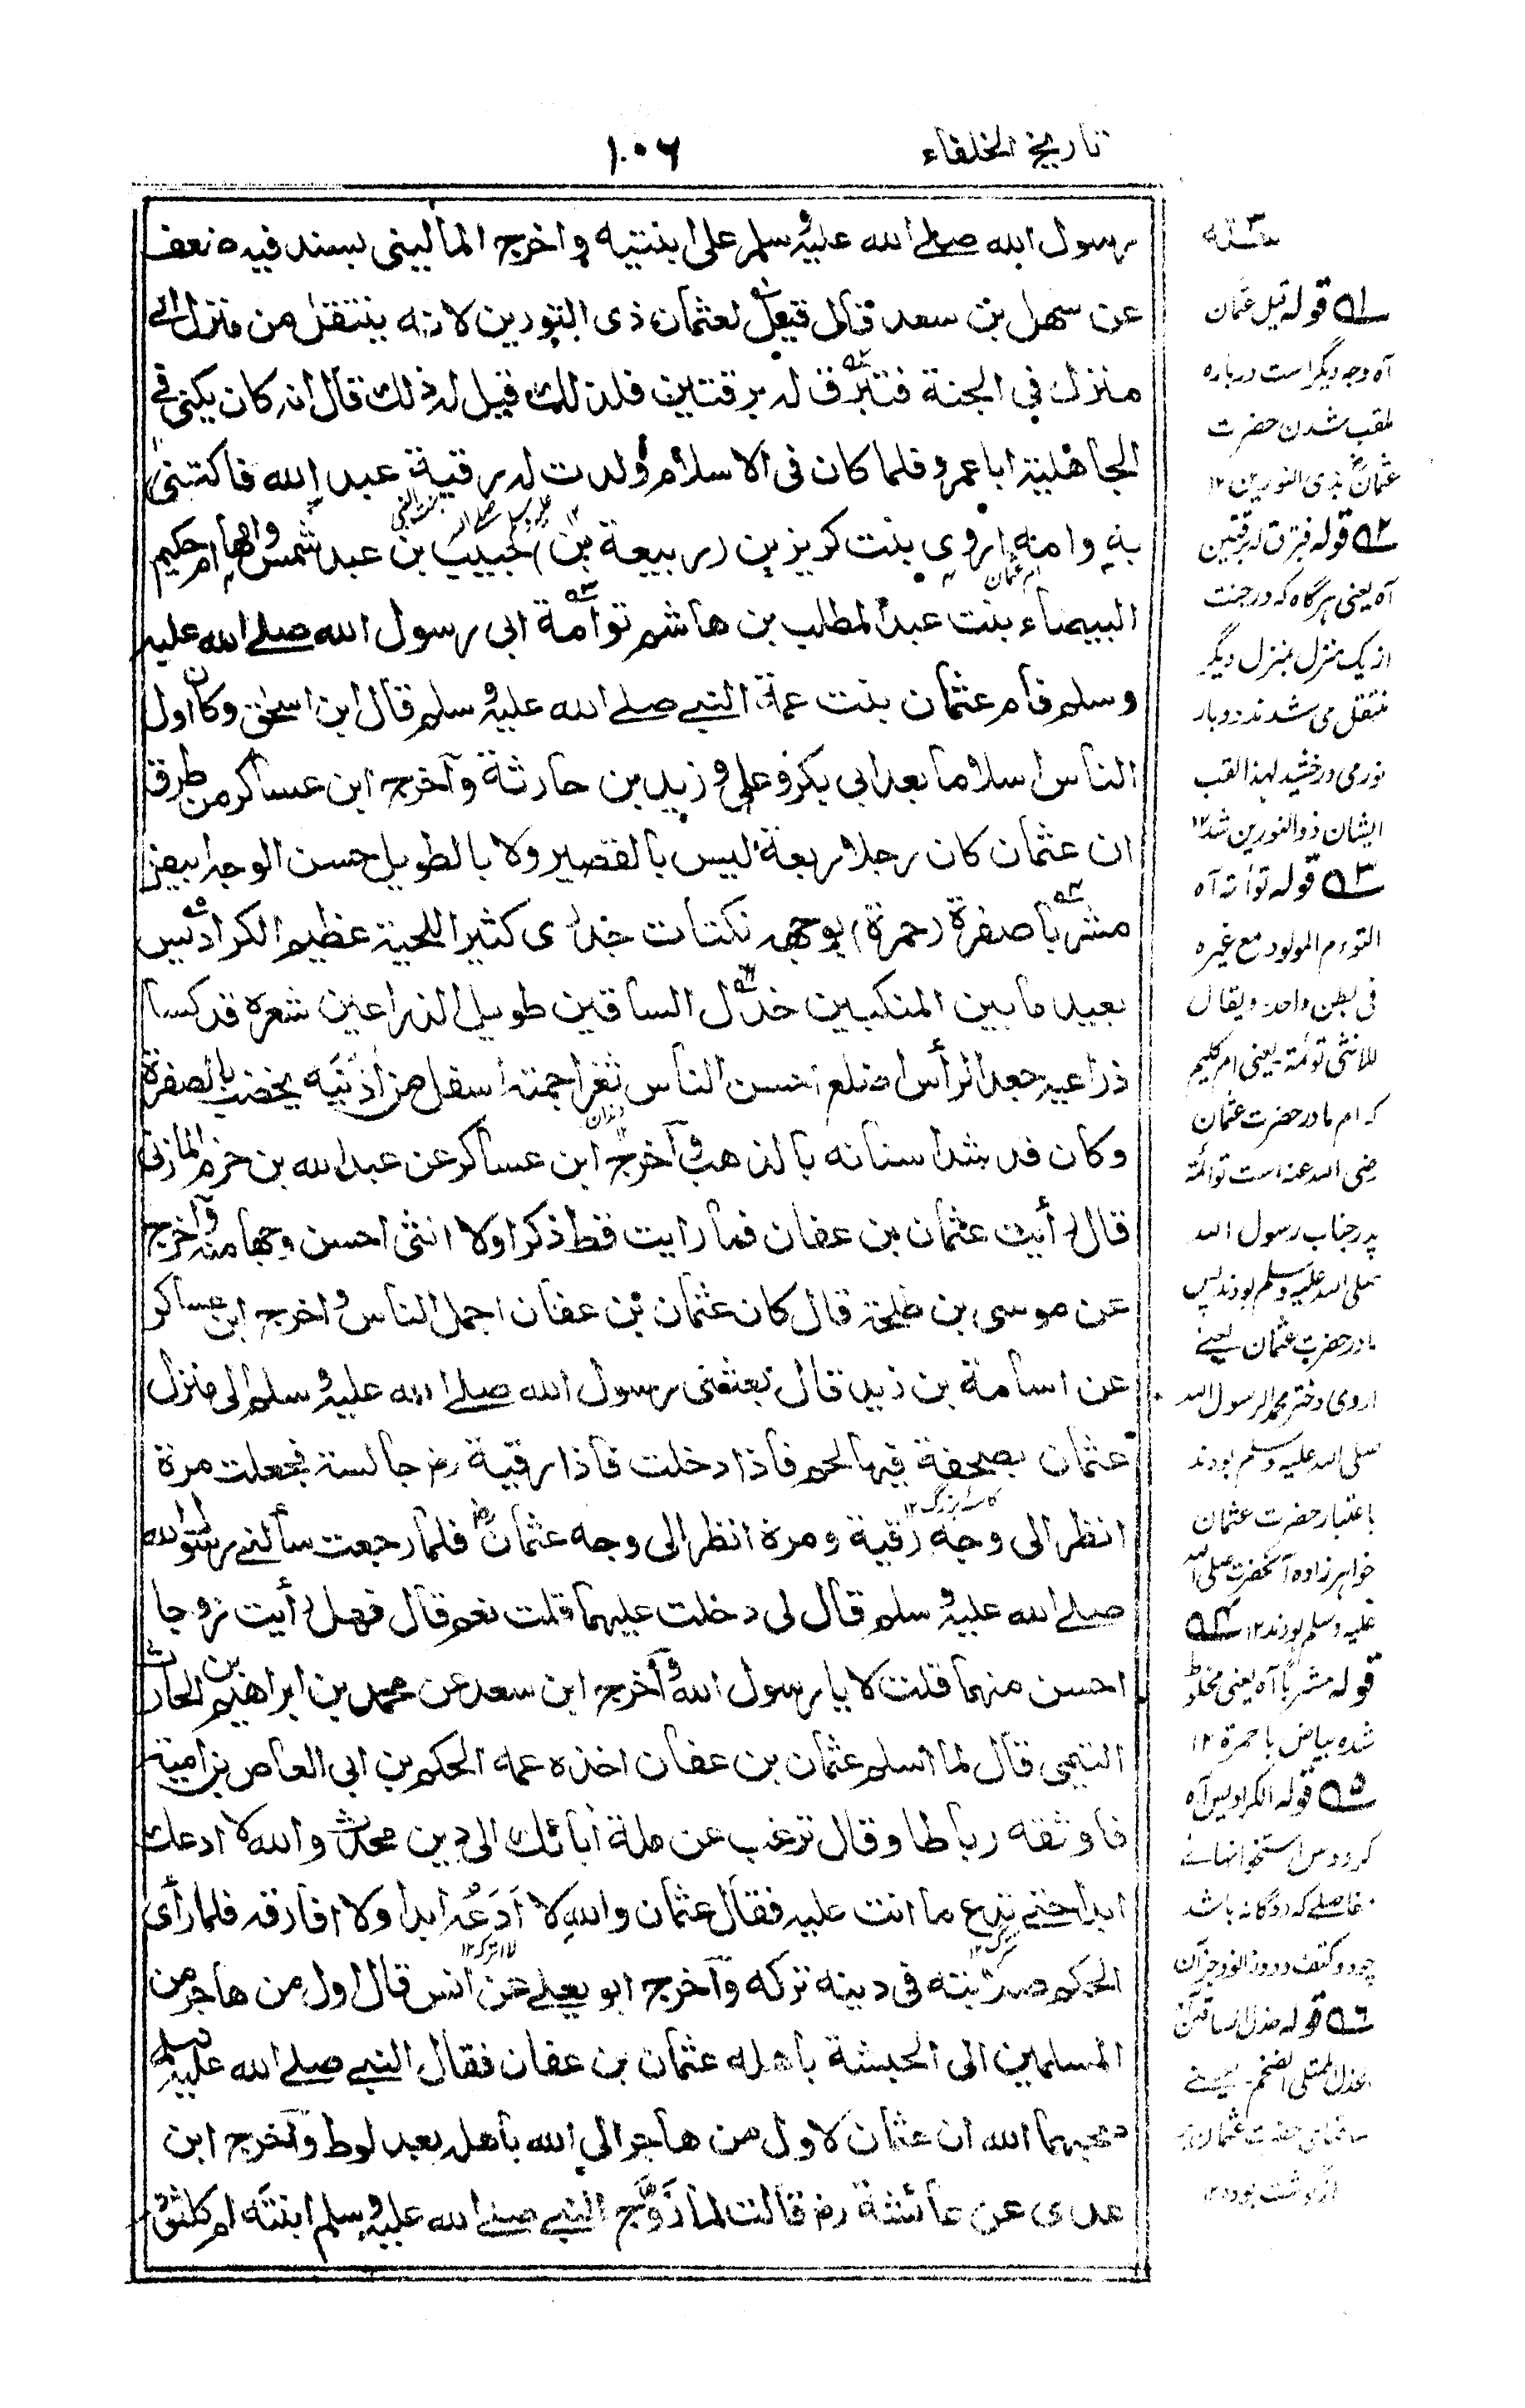 تاريخ الخلفاء
١٠٦
رسول الله صلے الله عليه وسلم على ابنتيه واخرج الماليني بسند فيه ضعف
عن سهل بن سعد قال قيل لعثمان ذى النورين لانه ينتقل من منزل الے
منزل في الجنة فتبرق له برقتين فلذلك قيل له ذلك قال انه كان يكنى في
الجاهلية ابا عمرو فلما كان فى الاسلام ولدت له رقية عبد الله فاكتنى
به وامه اروى بنت كريز بن (ربيعة بن) حبيب بن عبد شمس وامها ام حكيم
البيضاء بنت عبد المطلب بن هاشم توأمة ابى رسول الله صلے الله عليه
وسلم فام عثمان بنت عمة النبے صلے الله عليه وسلم قال ابن اسحق وكان اول
الناس اسلاما بعد ابى بكر وعلى وزيد بن حارثة وآخرج ابن عساكر من طرق
ان عثمان كان رجلا ربعة ليس بالقصير ولا بالطويل حسن الوجه ابيض
مشربا صفرة (حمرة) بوجهه نكتات جدرى كثير اللحية عظيم الكراديس
بعيد ما بين المنكبين خدل الساقين طويل الذراعين شعره قد كسا
ذراعيه جعد الرأس اصلع احسن الناس ثغرا جمته اسفل من اذنيه يخضب بالصفرة
وكان قد شد اسنانه بالذهب وآخرج ابن عساكر عن عبد الله بن حزم المازنى
قال رأيت عثمان بن عفان فما رايت قط ذكرا ولا انثى احسن وجها منه وآخرج
عن موسى بن طلحة قال كان عثمان بن عفان اجمل الناس واخرج ابن عساكر
عن اسامة بن زيد قال بعثنى رسول الله صلے الله عليه وسلم الى منزل
عثمان بصحفة فيها لحم فاذا دخلت فاذا رقية رض جالسة فجعلت مرة
انظر الى وجه رقية ومرة انظر الى وجه عثمان فلما رجعت سألنے رسول الله
صلے الله عليه وسلم قال لى دخلت عليهما قلت نعم قال فهل رأيت زوجا
احسن منهما قلت لا يا رسول الله وآخرج ابن سعد عن محمد بن ابراهيم بن الحارث
التيمى قال لما اسلم عثمان بن عفان اخذه عمه الحكم بن ابى العاص بن امية
فاوثقه رباطا وقال ترغب عن ملة أبائك الى دين محدث والله لا ادعك
ابدا حتے تدع ما انت عليه فقال عثمان والله لا أَدَعُه ابدا ولا افارقه فلما رأى
الحكم صلابته فى دينه تركه وآخرج ابو يعلے عن انس قال اول من هاجر من
المسلمين الى الحبشة باهله عثمان بن عفان فقال النبے صلے الله عليه وسلم
صحبهما الله ان عثمان لاول من هاجر الى الله باهله بعد لوط وآخرج ابن
عدى عن عائشة رض قالت لما زوج النبے صلے الله عليه وسلم ابنته ام كلثوم
قوله قيل عثمان
آه وجه ديگر است درباره
ملقب شدن حضرت
عثمان بذى النورين ١٢
قوله فتبرق له برقتين
آه يعنى هرگاه كه در جنت
از يک منزل بمنزل ديگر
منتقل مى شدند دوبار
نور مى درخشيد لهذا لقب
ايشان ذوالنورين شد ١٢
قوله توأمة آه
التوءم المولود مع غيره
فى بطن واحد ويقال
للانثى توئمة يعنى ام حكيم
كه ام مادر حضرت عثمان
رضى الله عنه است توأمة
پدر جناب رسول الله
صلى الله عليه وسلم بودند پس
مادر حضرت عثمان يعنے
اروى دختر عمه رسول الله
صلى الله عليه وسلم بودند
باعتبار حضرت عثمان
خواهرزاده آنحضرت صلى الله
عليه وسلم بودند ١٢
قوله مشربا آه يعنى مخلوط
شده بياض با حمرة ١٢
قوله الكراديس آه
كردوس استخوانهائے
مفاصلے كه دوگانه باشد
چو دو كتف و دو زانو وجز آن
قوله خدل الساقين
خدل الممتلى الضخم يعنے